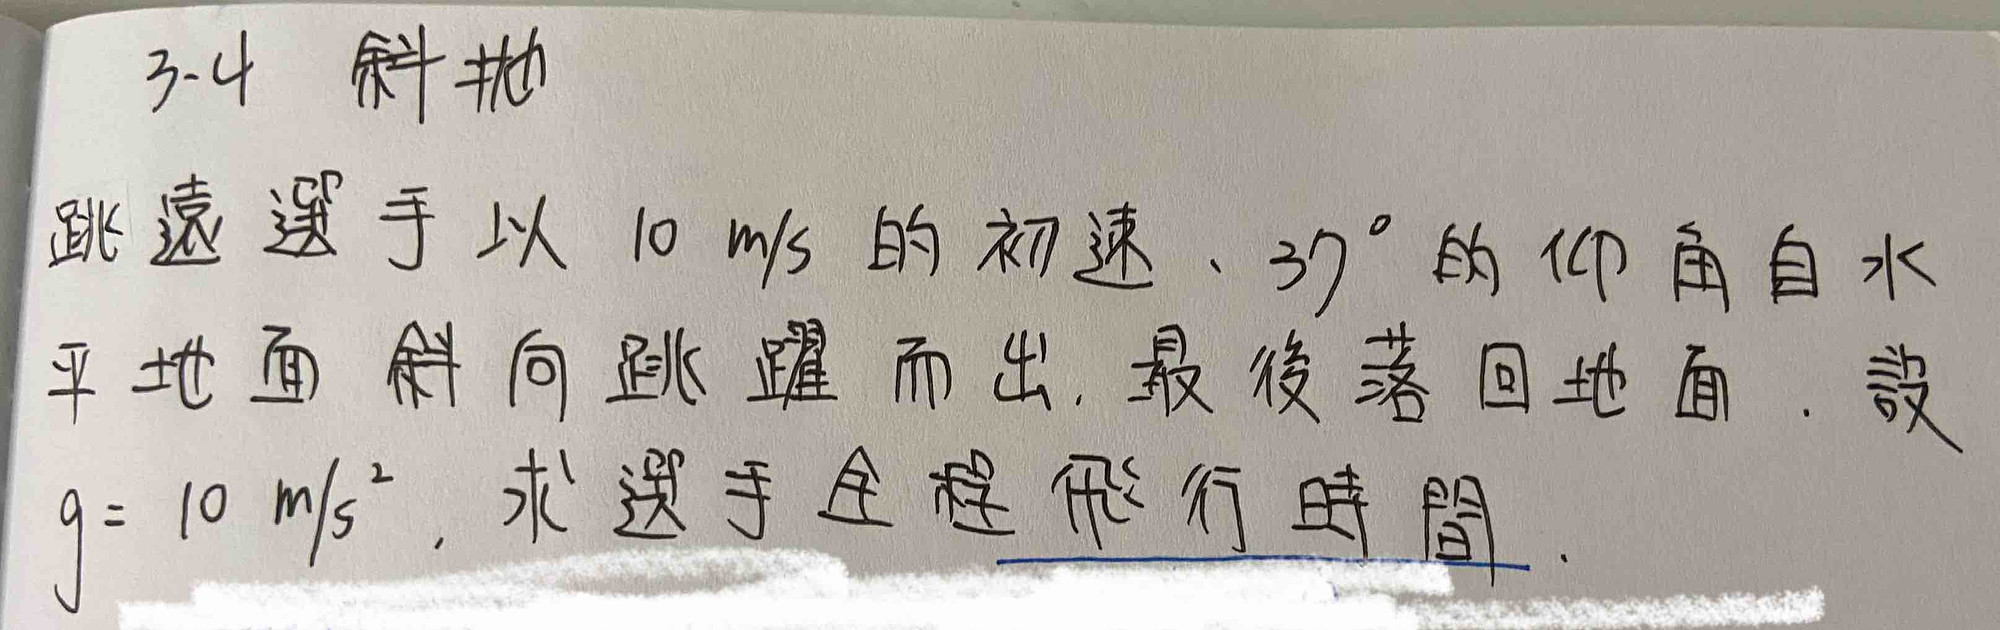 3-4 斜拋
跳遠選手以 10 m/s 的初速、37° 的仰角自水
平地面斜向跳躍而出, 最後落回地面. 設
g = 10 m/s², 求選手全程飛行時間.